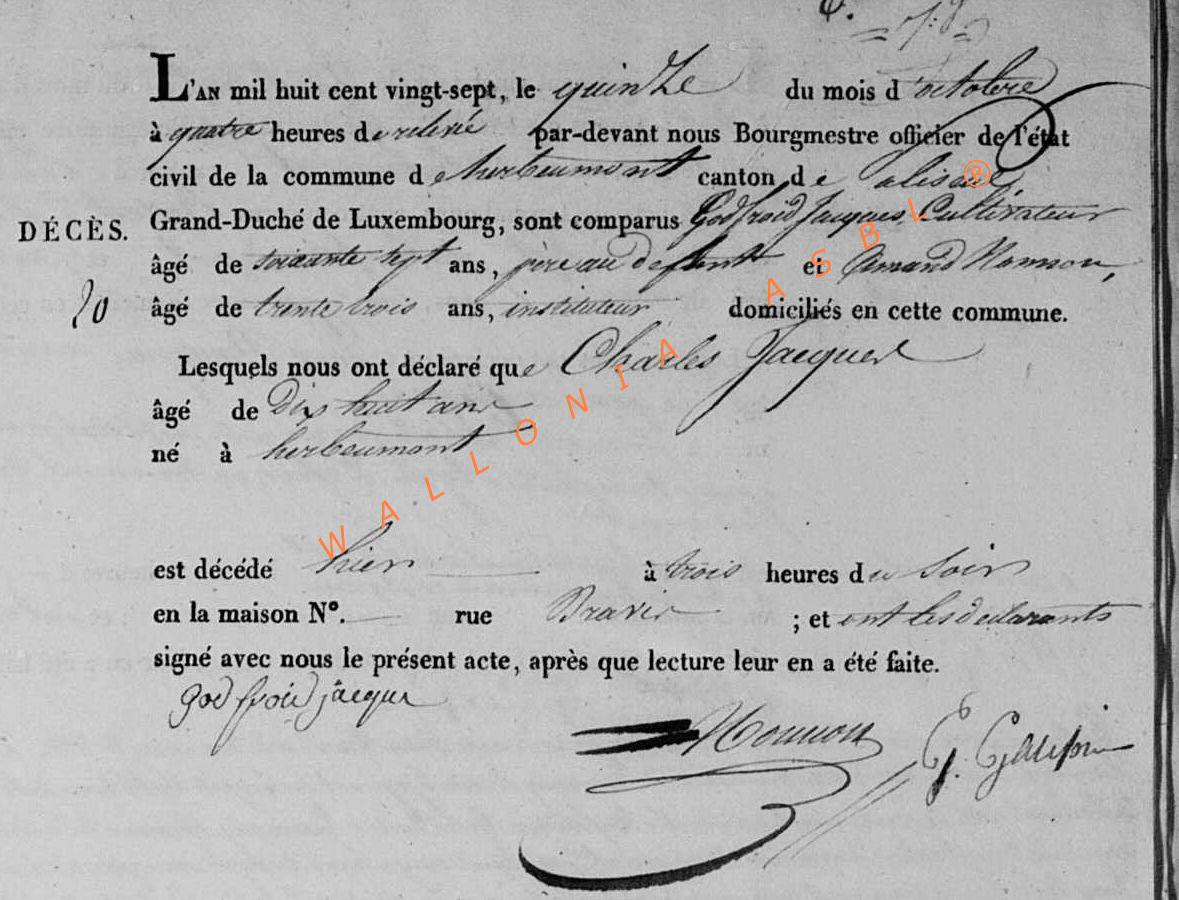 L'AN mil huit cent vingt-sept, le quinze du mois d'octobre
à quatre heures de relevé par-devant nous Bourgmestre officier de l'état
civil de la commune d'herbeumont canton de Paliseul,
DÉCÈS. Grand-Duché de Luxembourg, sont comparus Godfroid Jacques, Cultivateur
âgé de soixante sept ans, père au defunt et Amand
20 âgé de trente trois ans, instituteur domiciliés en cette commune.
Lesquels nous ont déclaré que Charles Jacques
âgé de Dix huit ans
né à herbeumont
est décédé hier à trois heures du Soir
en la maison N°. rue ; et ont les declarants
signé avec nous le présent acte, après que lecture leur en a été faite.
godfroid jacque
WALLONIA ASBL ®